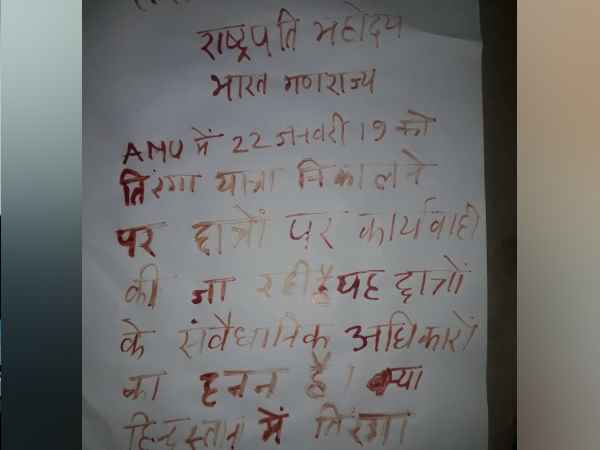 राष्ट्रपति महोदय
भारत गणराज्य
AMU में 22 जनवरी 19 को
तिरंगा यात्रा निकालने
पर छात्रों पर कार्यवाही
की जा रही है यह छात्रों
के संवैधानिक अधिकारों
का हनन है। क्या
हिन्दुस्तान में तिरंगा